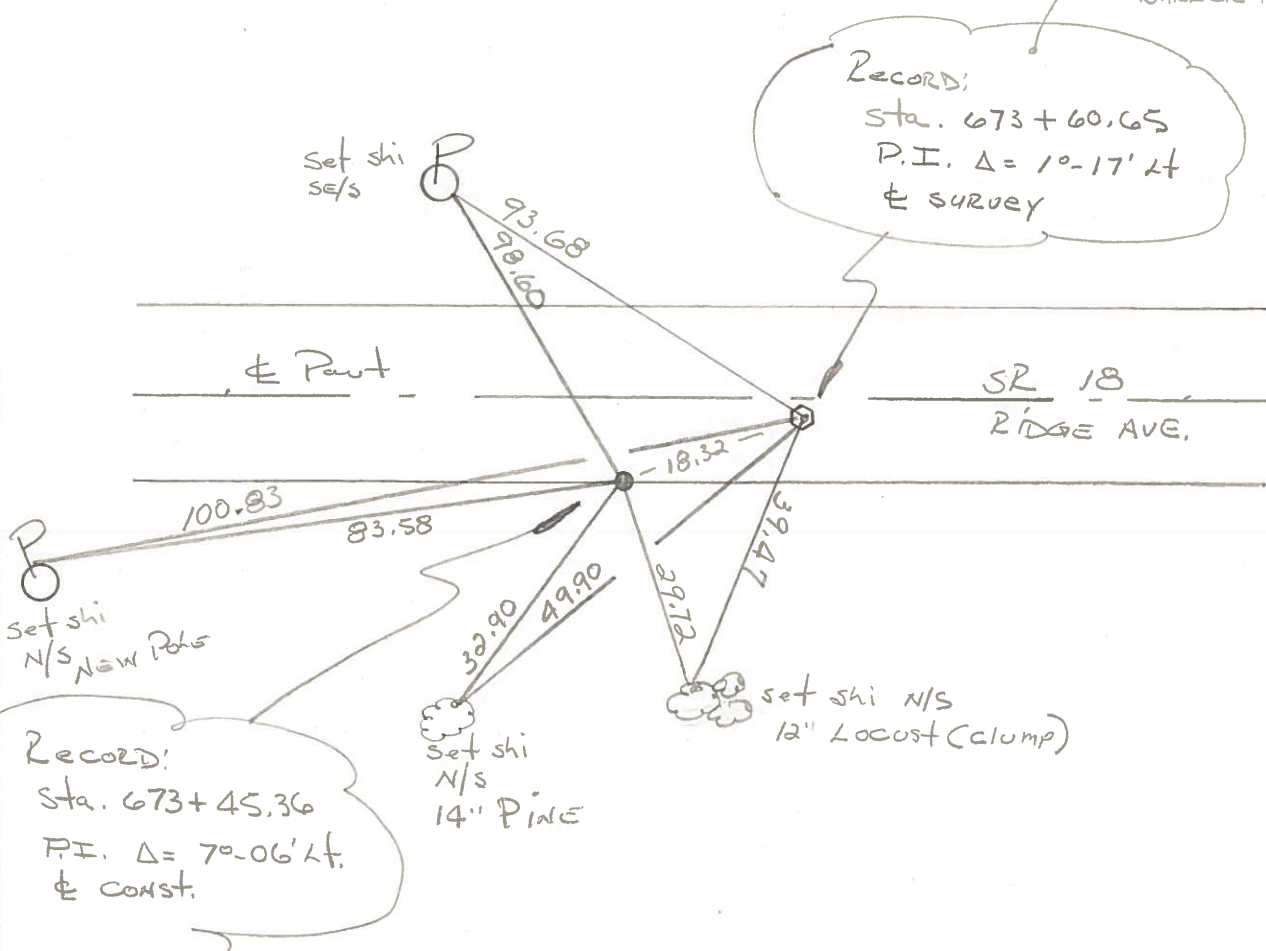 Record:
Sta. 673+60.65
P.I. Δ= 1°-17' Lt
℄ SURVEY
Set shi
SE/S
P
93.68
98.60
℄ Pavt
SR 18
RIDGE AVE.
18.32
100.83
83.58
39.47
29.72
49.90
32.90
P
Set shi
N/S NEW POLE
Set shi N/S
12" Locust (clump)
Set shi
N/S
14" PINE
Record:
Sta. 673+45.36
P.I. Δ= 7°-06' Lt.
℄ CONST.